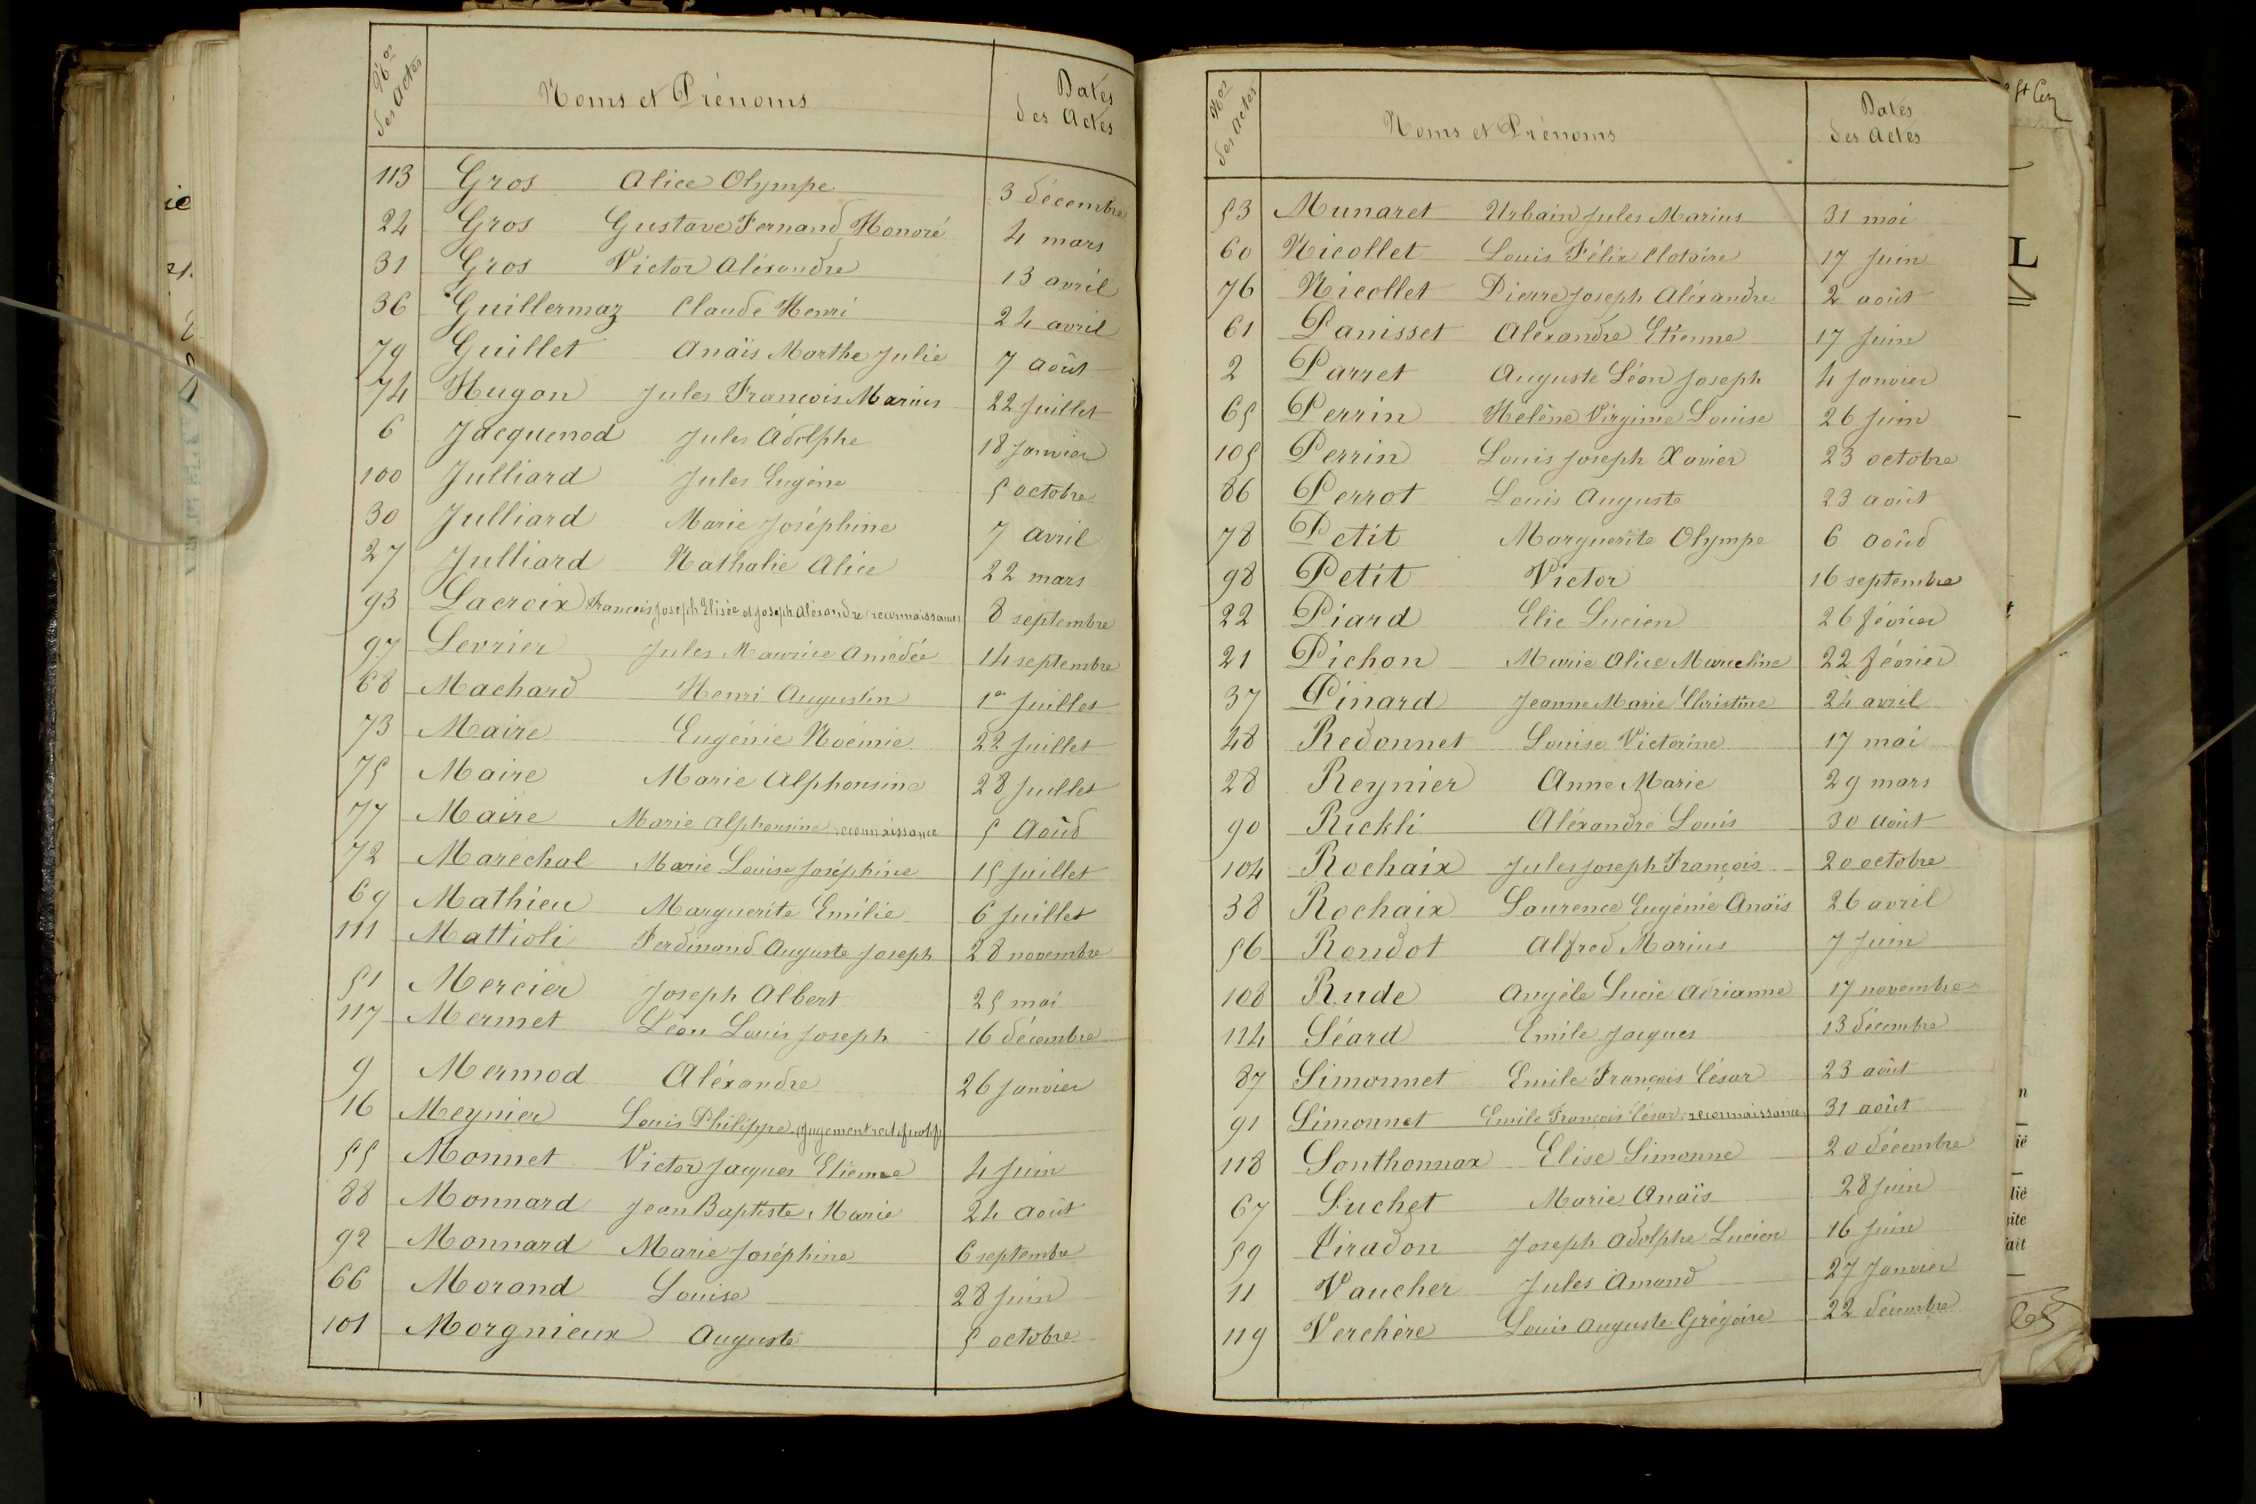 Nos des actes Noms et Prénoms Dates des Actes
113 Gros Alice Olympe 3 décembre
24 Gros Gustave Fernand Honoré 4 mars
31 Gros Victor Aléxandre 13 avril
36 Guillermaz Claude Henri 24 avril
79 Guillet Anaïs Marthe Julie 7 août
74 Hugon Jules François Marius 22 Juillet
6 Jacquenod Jules Adolphe 18 Janvier
100 Julliard Jules Eugène 5 octobre
30 Julliard Marie Joséphine 7 avril
27 Julliard Nathalie Alice 22 mars
93 Lacroix François Joseph Elisée et Joseph Aléxandre reconnaissance 8 septembre
97 Levrier Jules Maurice Amédée 14 septembre
68 Machard Henri Augustin 1er Juillet
73 Maire Eugénie Noémie 22 Juillet
75 Maire Marie Alphonsine 28 Juillet
77 Maire Marie Alphonsine reconnaissance 5 Aoûd
72 Maréchal Marie Louise Joséphine 15 Juillet
69 Mathieu Marguerite Emilie 6 Juillet
111 Mattioli Ferdinand Auguste Joseph 28 novembre
51 Mercier Joseph Albert 25 mai
117 Mermet Léon Louis Joseph 16 décembre
9 Mermod Aléxandre 26 Janvier
16 Meynier Louis Philippe Jugement
55 Monnet Victor Jacques Etienne 4 Juin
88 Monnard Jean Baptiste Marie 24 Août
92 Monnard Marie Joséphine 6 septembre
66 Morand Louise 28 Juin
101 Morgnieux Auguste 5 octobre
Nos des actes Noms et Prénoms Dates des Actes
53 Munaret Urbain Jules Marius 31 mai
60 Nicollet Louis Félix Clotaire 17 Juin
76 Nicollet Pierre Joseph Aléxandre 2 août
61 Panisset Aléxandre Etienne 17 Juin
2 Parret Auguste Léon Joseph 4 Janvier
65 Perrin Hélène Virginie Louise 26 Juin
105 Perrin Louis Joseph Xavier 23 octobre
86 Perrot Louis Auguste 23 août
78 Petit Marguerite Olympe 6 aoûd
98 Petit Victor 16 septembre
22 Piard Elie Lucien 26 février
21 Pichon Marie Alice Marceline 22 février
37 Pinard Jeanne Marie Christine 24 avril
48 Redonnet Louise Victorine 17 mai
28 Reynier Anne Marie 29 mars
90 Rickli Aléxandre Louis 30 Août
104 Rochaix Jules Joseph François 20 octobre
38 Rochaix Laurence Eugénie Anaïs 26 avril
56 Rondot Alfred Marius 7 Juin
108 Rude Angèle Lucie Adrianne 17 novembre
114 Séard Emile Jacques 13 décembre
87 Simonnet Emile François César 23 août
91 Simonnet Emile François César reconnaissance 31 août
118 Sonthonnax Elise Simonne 20 décembre
67 Suchet Marie Anaïs 28 Juin
59 Tiradon Joseph Adolphe Lucien 16 Juin
11 Vaucher Jules Amand 27 Janvier
119 Verchère Louis Auguste Grégoire 22 décembre
L